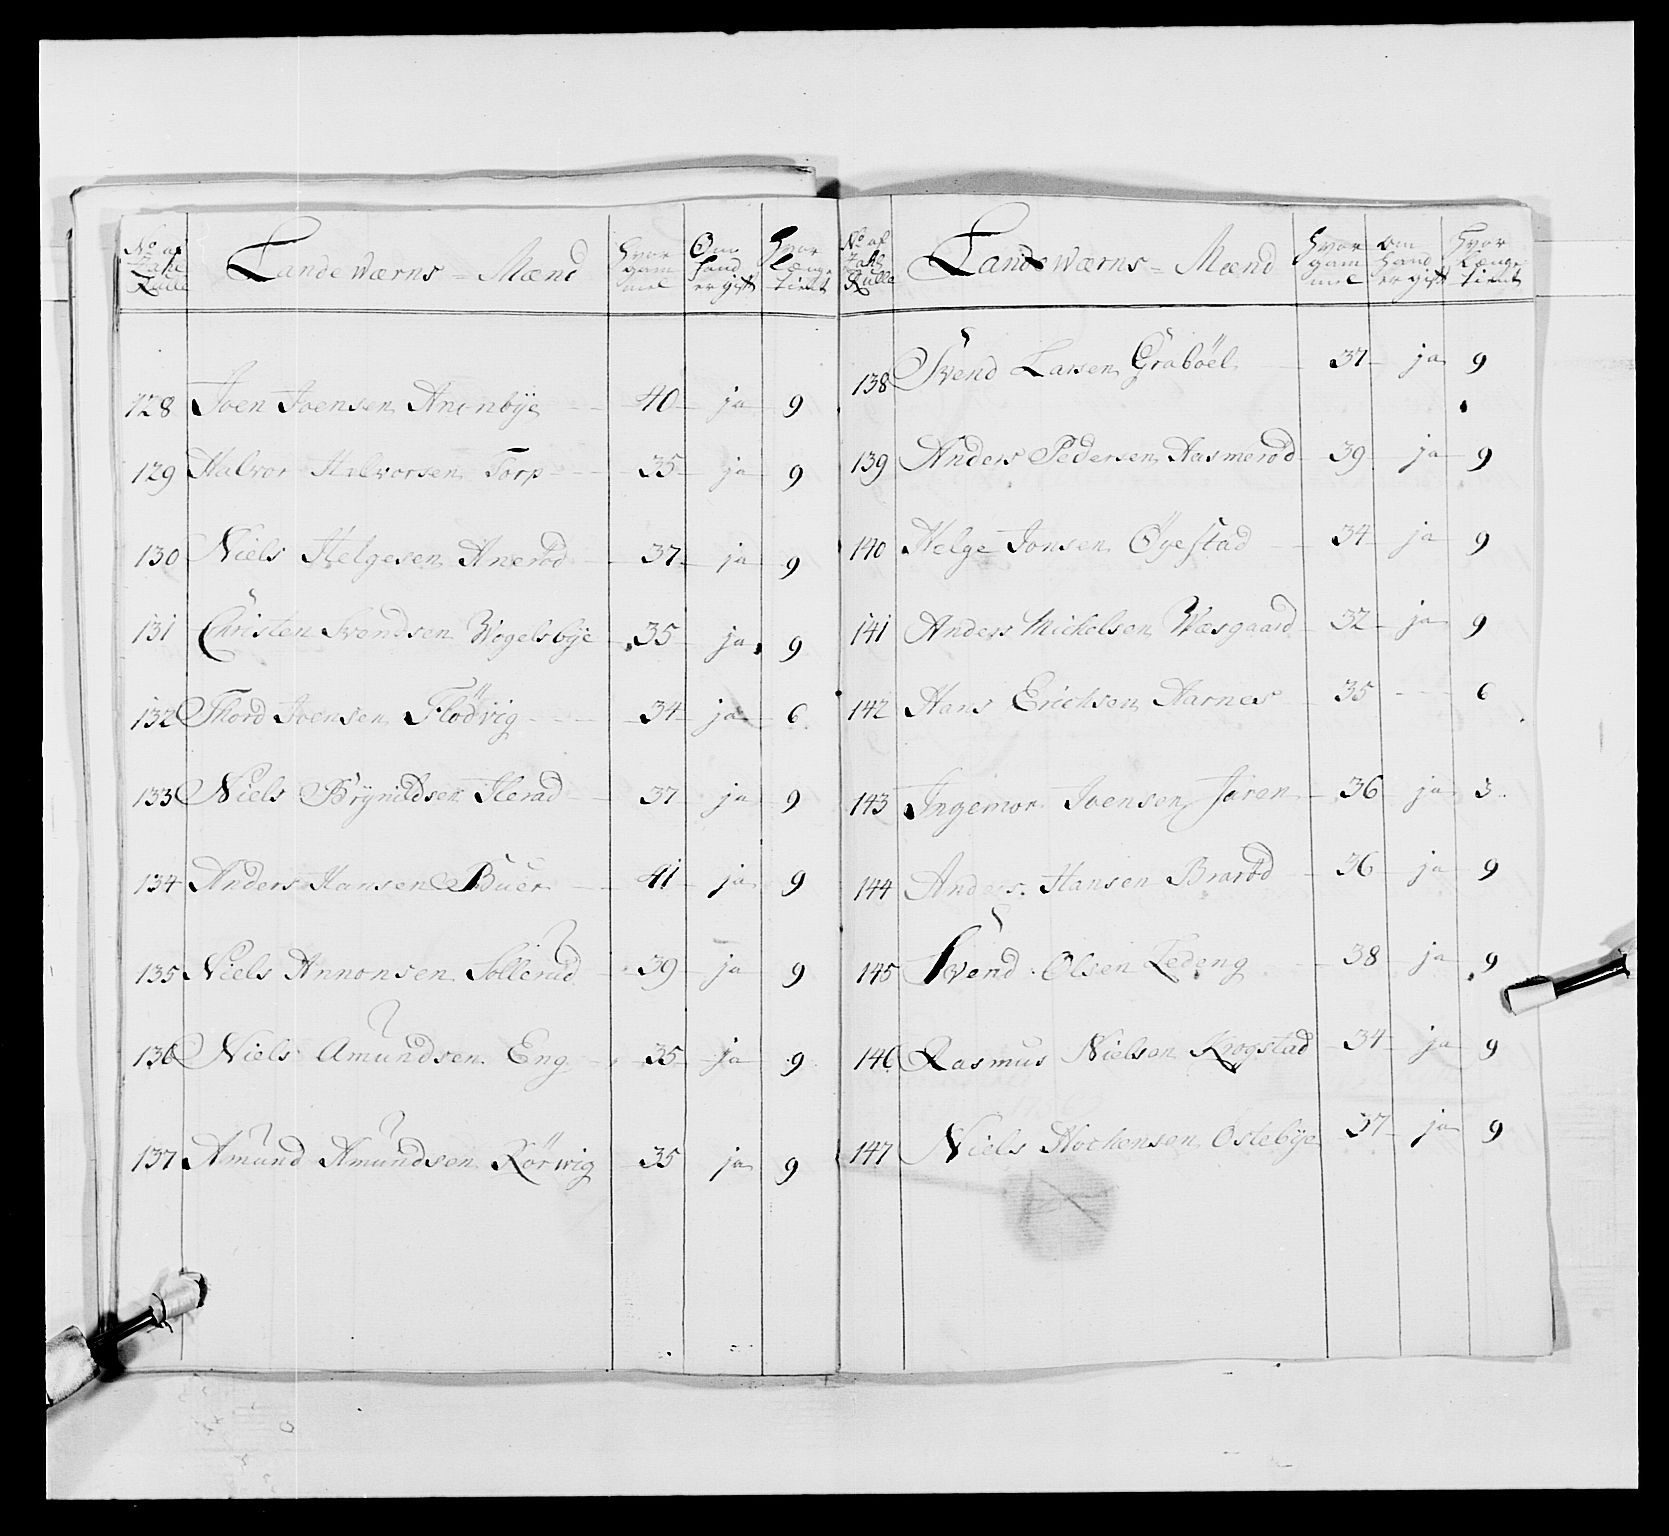 No af Tahl Rulle | Landeværns-Mænd | Hvor gam mel | Om hand er gift | Hvor længe tient
128 Joen Joensen Anonbÿe 40 ja 9
129 Halvor Halvorsen Torp 35 ja 9
130 Niels Helgesen Anerød 37 ja 9
131 Christen Svendsen Wogelsbÿe 35 ja 9
132 Thord Joensen Flödvig 34 ja 6
133 Niels Brÿnildsen Herad 37 ja 9
134 Anders Hansen Buer 41 ja 9
135 Niels Annonsen Sollerud 39 ja 9
136 Niels Amundsen Eng 35 ja 9
137 Amund Amundsen Rörwig 35 ja 9
No af Tahl Rulle | Landeværns-Mænd | Hvor gam mel | Om hand er gift | Hvor længe tient
138 Svend Larsen Graböel 37 ja 9
139 Anders Pedersen Aasmeröd 39 ja 9
140 Helge Jonsen Öyestad 34 ja 9
141 Anders Michelsen Wæsgaard 32 ja 9
142 Hans Erichsen Aarnes 35 - - - 6
143 Ingemor Joensen Jaren 36 ja 3
144 Anders Hansen Braröd 36 ja 9
145 Svend Olsen Ledeng 38 ja 9
146 Rasmus Nielsen Krogstad 34 ja 9
147 Niels Hochensen Östebÿe 37 ja 9